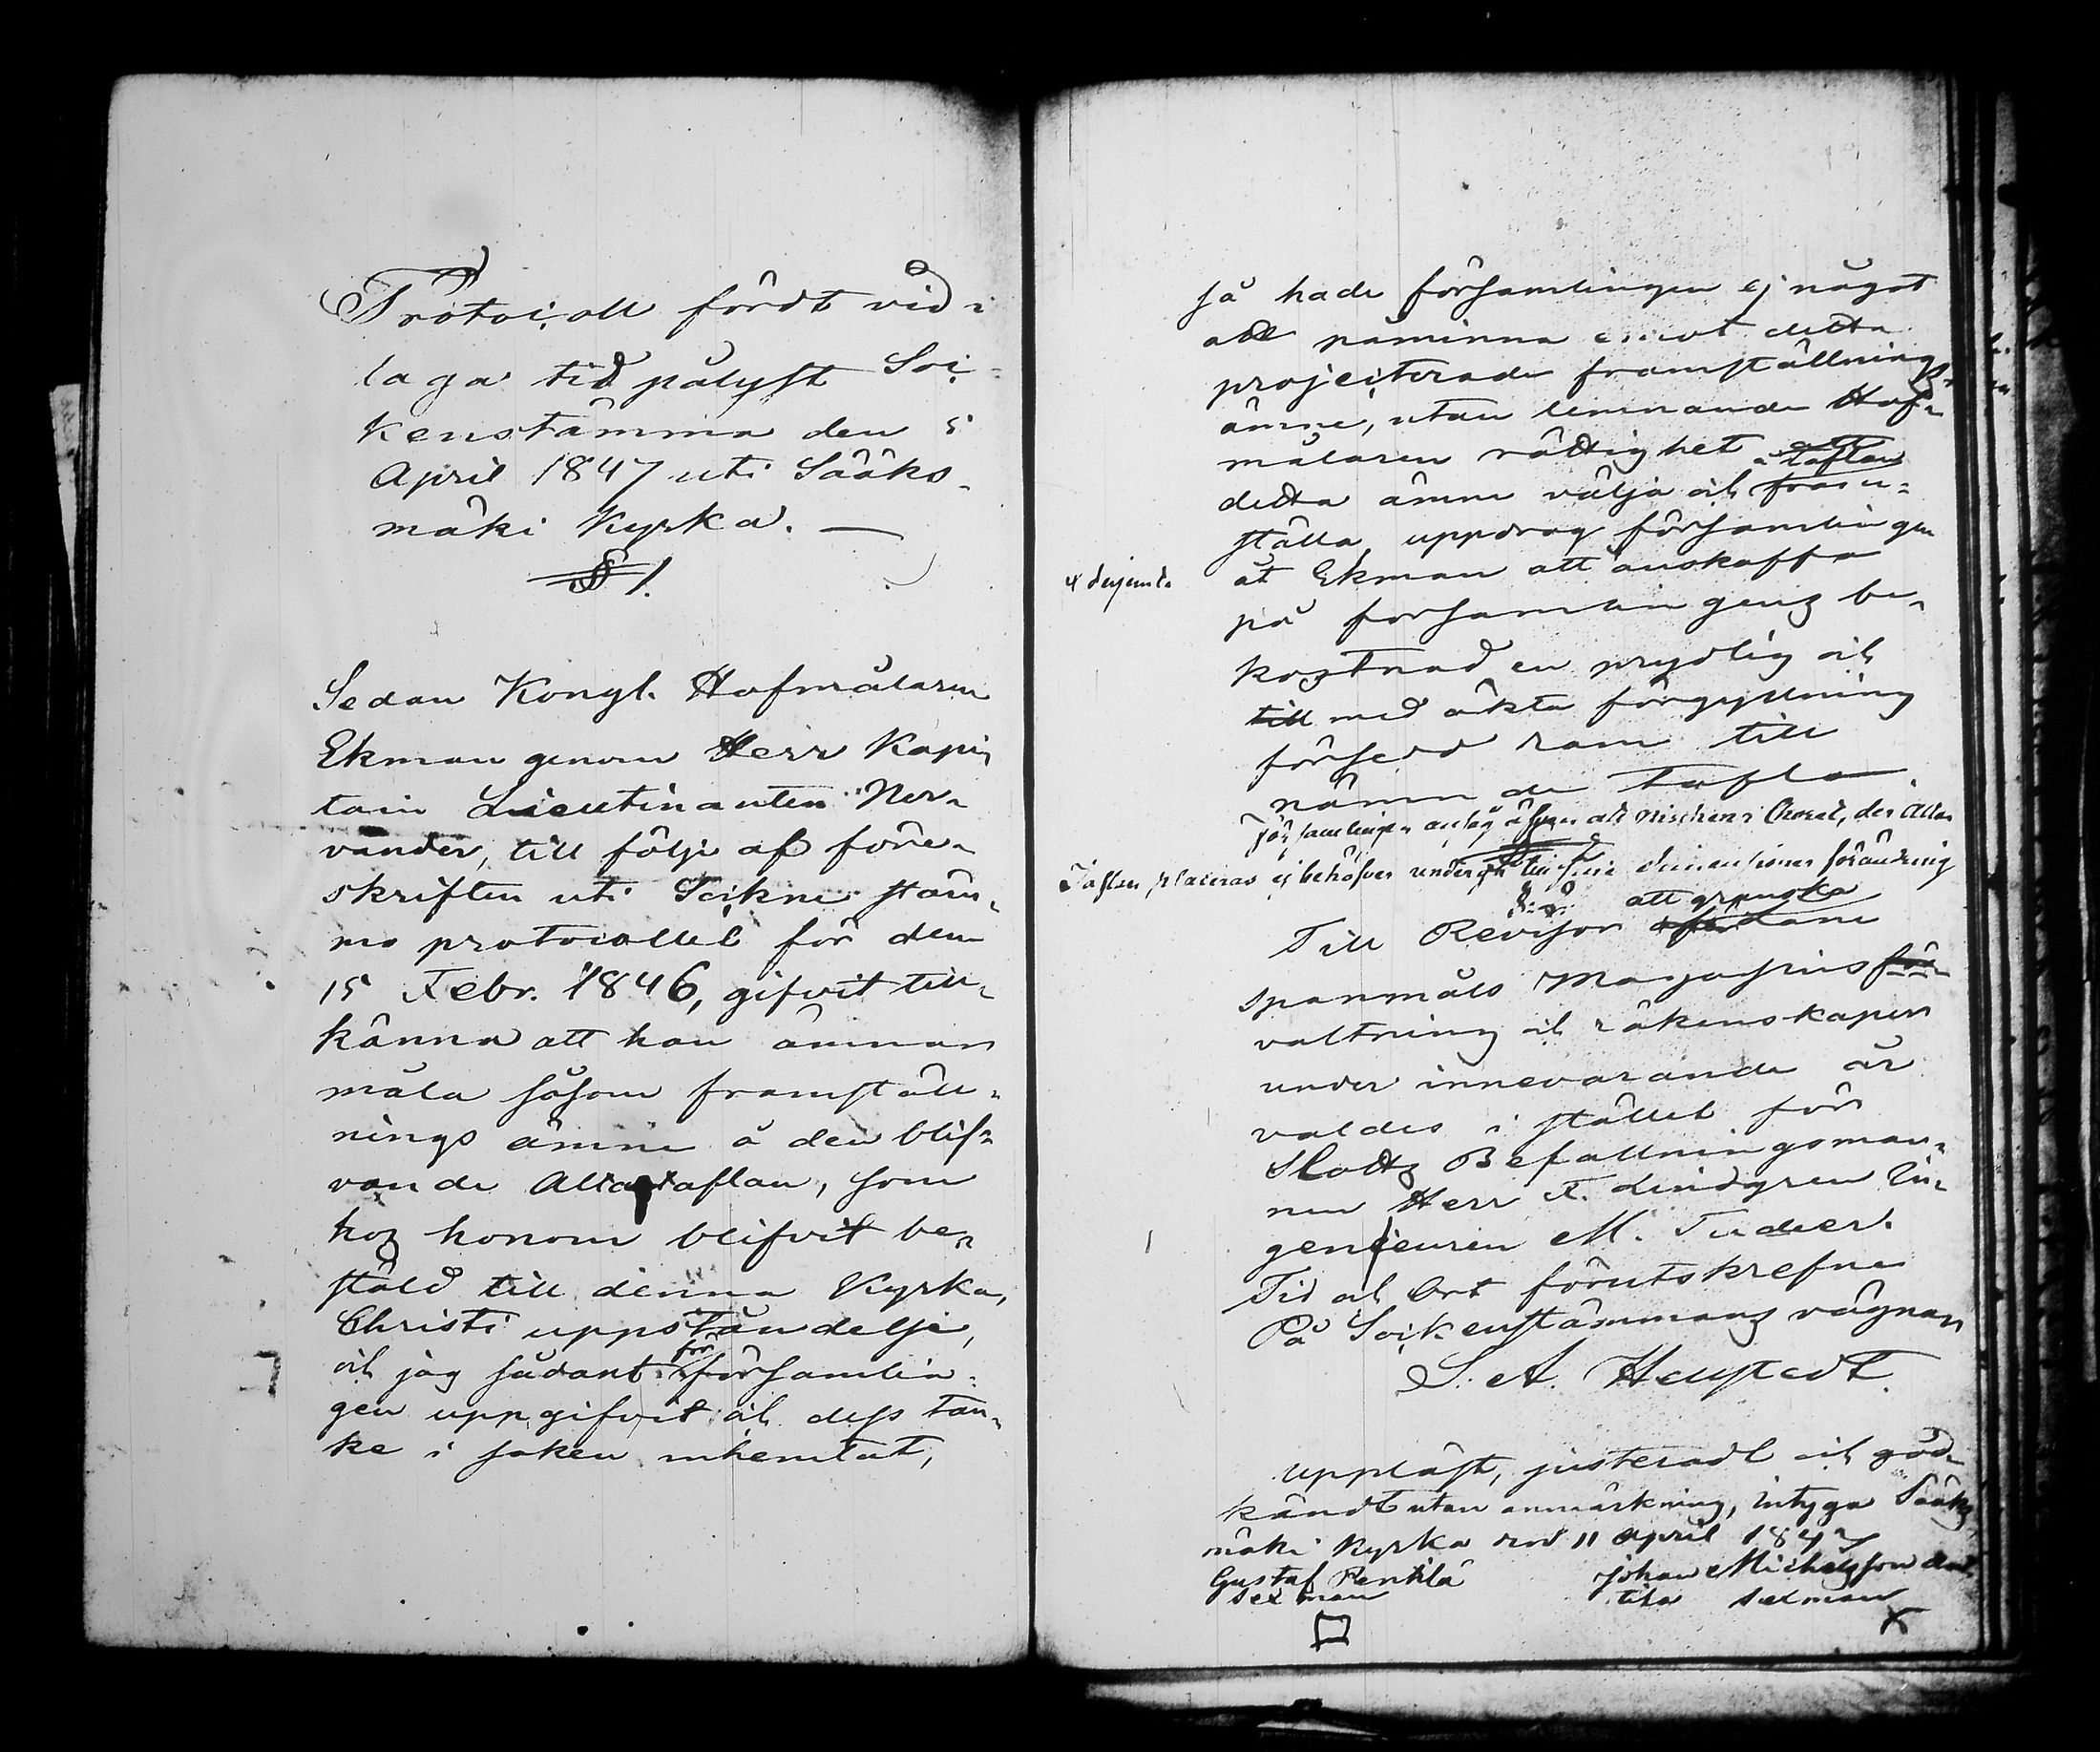 Protocoll fördt vid i
laga tid pålyst Soc-
kenstämma den 5
April 1847 uti Sääks-
mäki Kyrka. —
§ 1.
Sedan Kongl. Hofmålaren
Ekman genom Herr Kapi-
tain Lieutinanten Ner-
vander, till följe af före-
skriften uti Sockne stäm-
mo protocollet för den
15 Febr. 1846, gifvit till-
känna att han ämnar
måla såsom framställ-
nings ämne å den blif-
vande Altartaflan, som
hoz honom blifvit be-
ställd till denna Kyrka,
Christi uppståndelse,
och jag sådant för församlin-
gen uppgifvit och dess tan-
ke i saken inhemtat,
så hade församlingen ej något
att påminna emot detta
projecterade framställnings-
ämne, utan lemnande Hof-
målaren rättighet att
detta ämne välja och å taflan fram-
ställa, uppdrog församlingen
åt Ekman att anskaffa
på församlingenz be-
kostnad en prydlig och
till med äkta förgyllning
försedd ram till
nämnde Tafla.
Församlingen ansåg äfven att nischen i Choret, der Altar
Taflan placeras ej behöfver undergå till sine dimensioner förändring
Till Revisor att granska
spanmåls Magasins för-
valtning och räkenskaper
under innevarande år
valdes i stället för
Slottz Befallningsman-
nen Herr F. Lindgren In-
genieuren M. Tudeer.
Tid och Ort förutskrefne
På Sockenstämmans vägnar
S. A. Hellstedt.
Uppläst, justeradt och god-
kändt utan anmärkning, intyga Sääks-
mäki Kyrka den 11 April 1847
Gustaf Pentilä Johan Michelsson
Sexman tila sexman